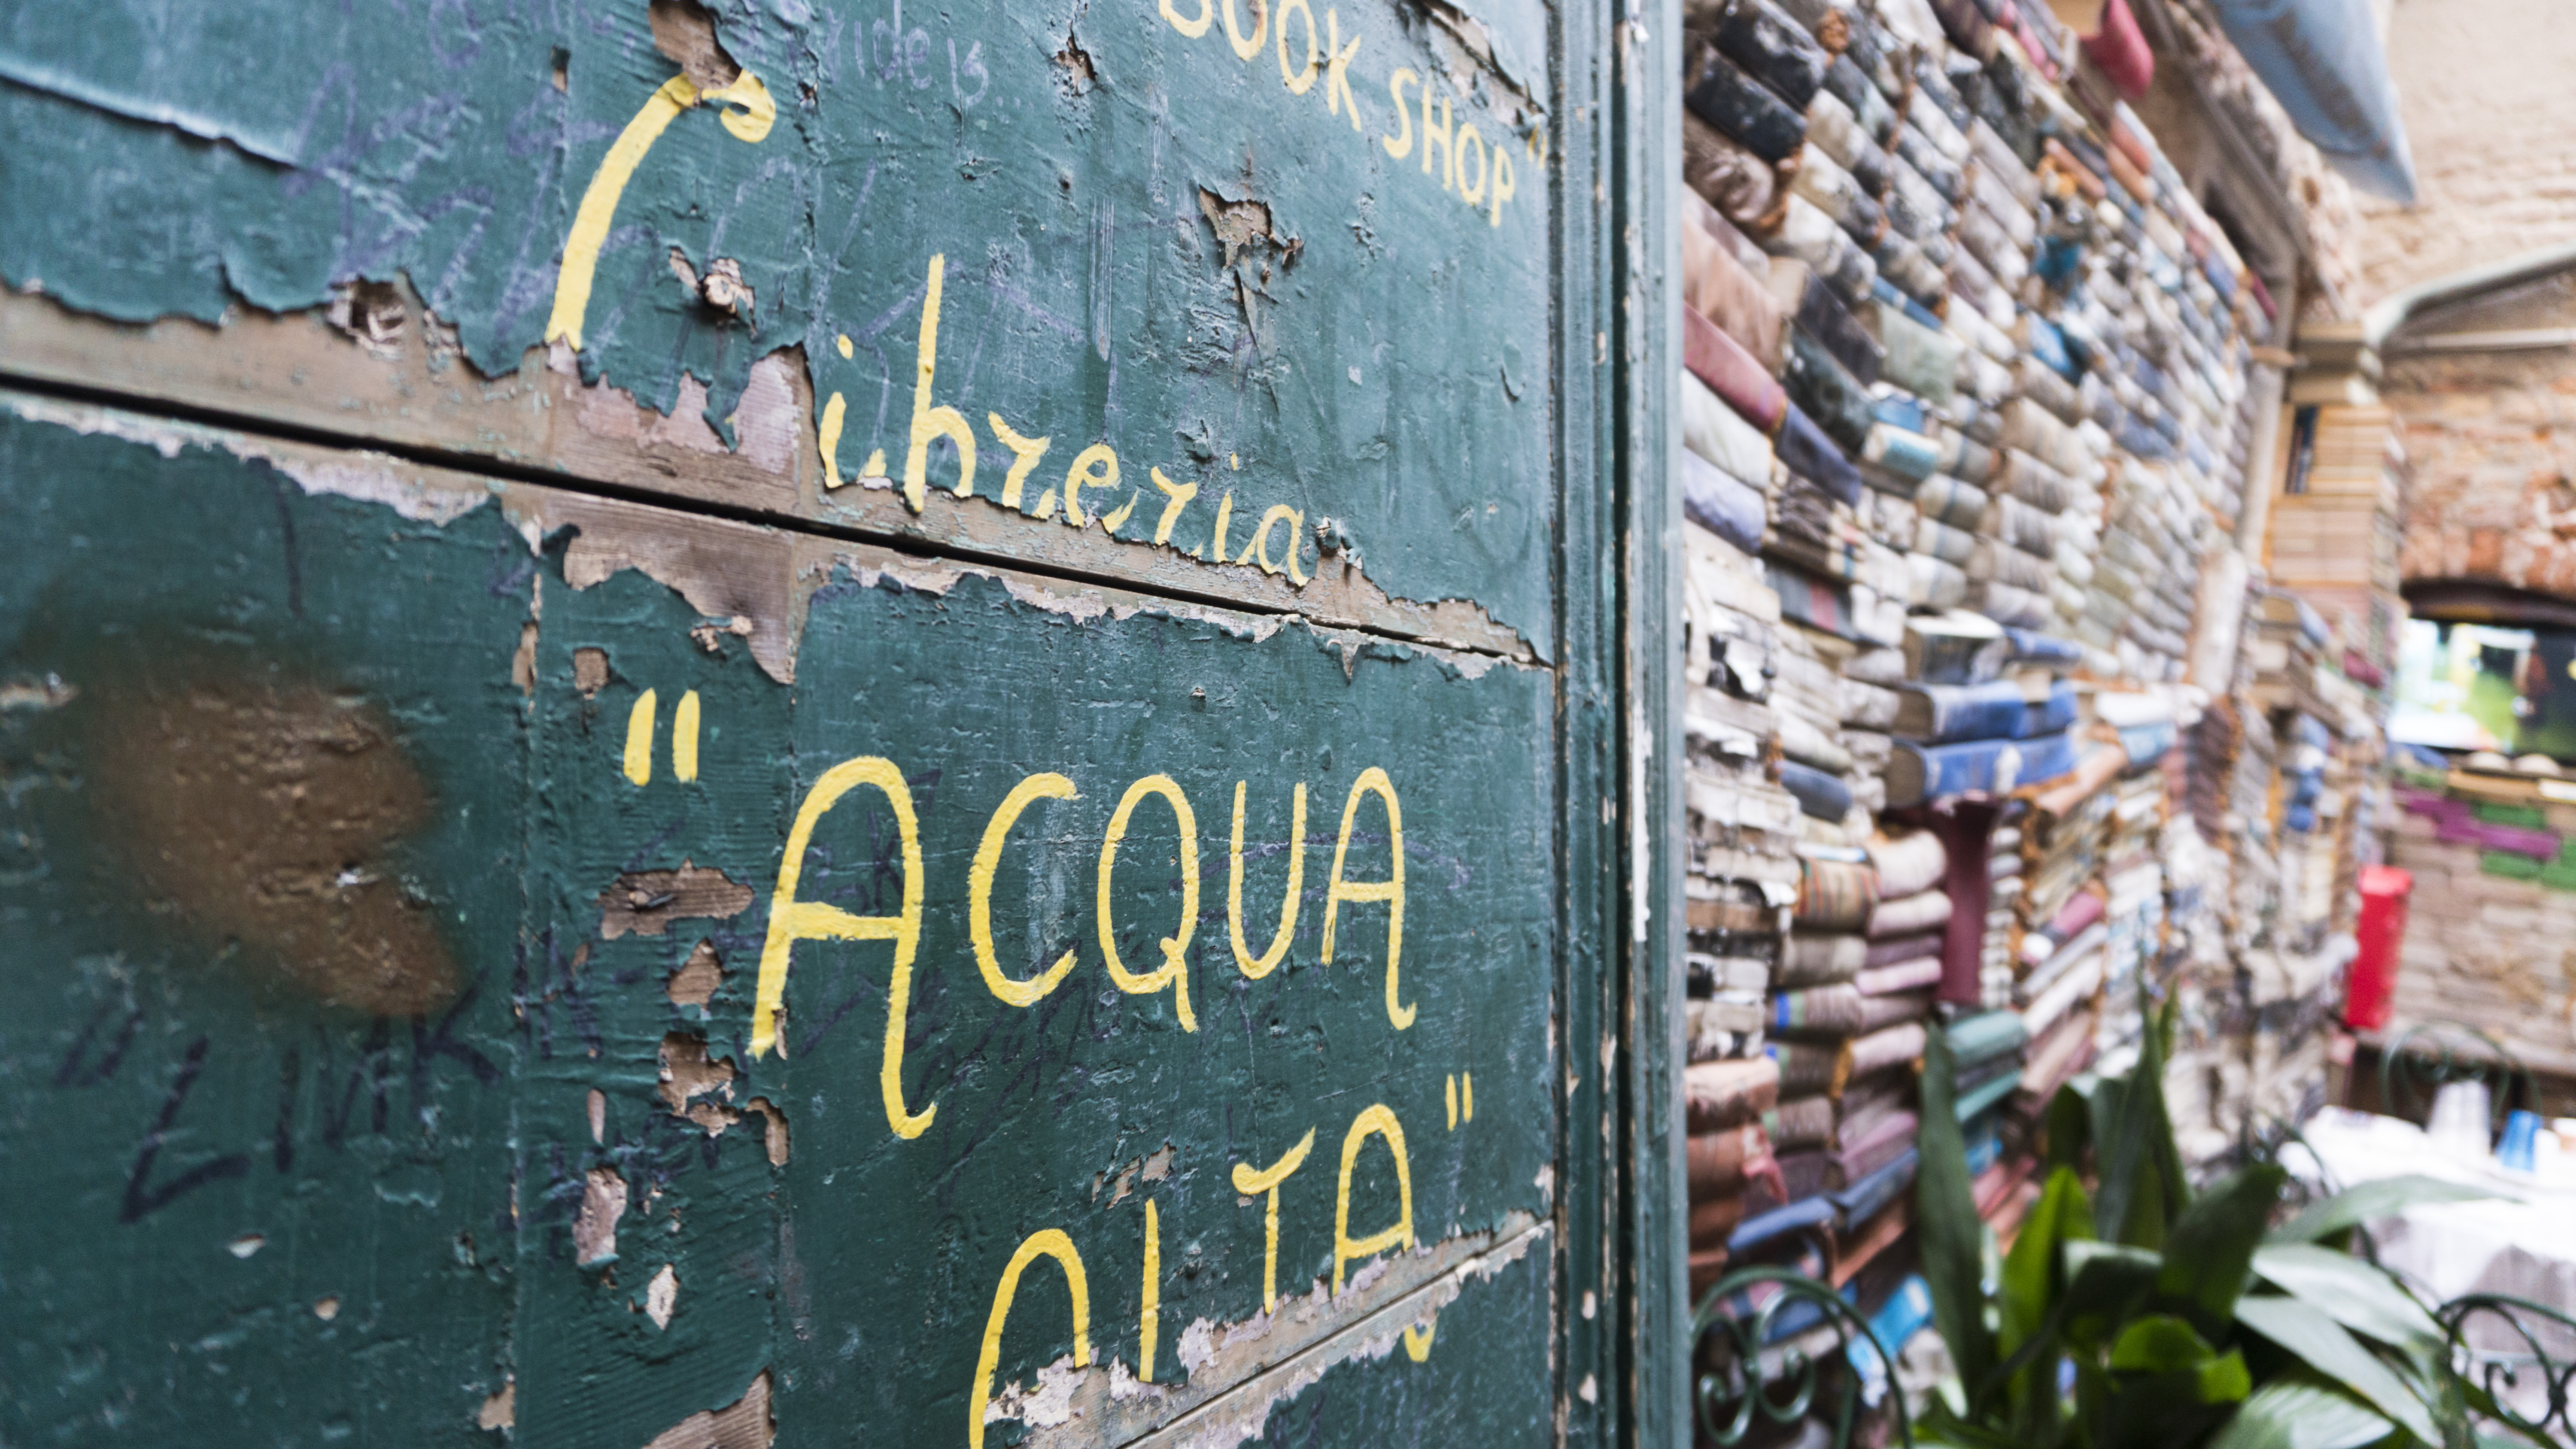 BOOK SHOP"
Libreria
"ACQUA
ALTA"